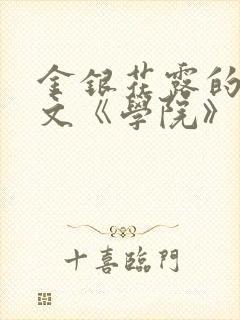 金銀花露的
文《學院》
十喜臨門